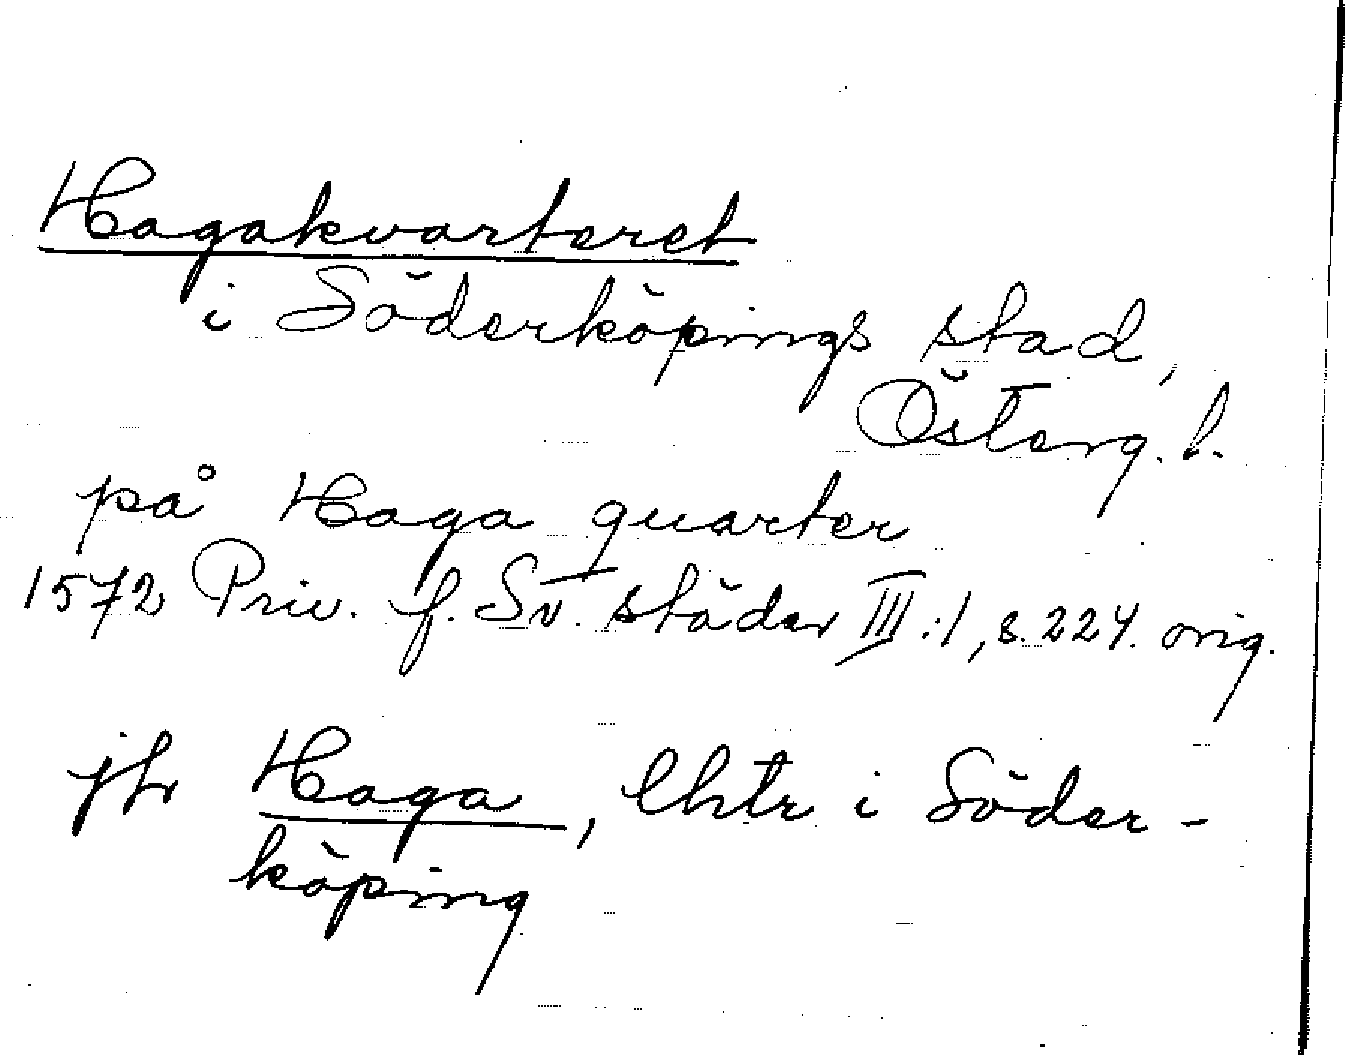 Hagakvarteret
i Söderköpings stad,
Österg. l.
på Haga quarter
1572 Priv. f. Sv. städer III:1, s. 224. orig.
jfr Haga, lhtr i Söder-
köping